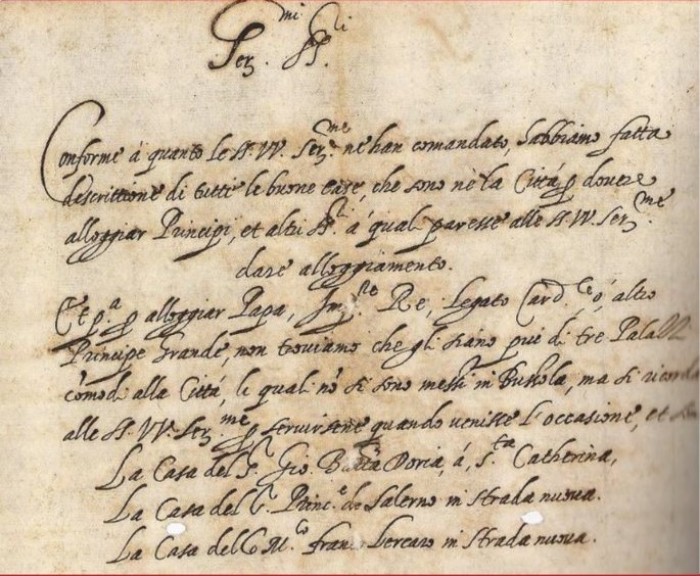 Ser.mi SS.li
Conforme à quanto le SS. VV. Ser.me ne han comandato, habbiamo fatta
descrittione di tutti le buone case, che sono nè la Città p dovere
alloggiar Principi, et altri SS.li à quali paresse alle SS. VV. Ser.me
dare alloggiamento.
Et p.a p alloggiar Papa, Im.re Re, legato Card.le ò, altro
Principe Grande, non troviamo che gli siano più di tre Palazzi
còmodi alla Città, li quali nò si sono messi in Bussola, ma si ricorda
alle SS. VV. Ser.me p servirsene quando venisse l'occasione, et
La Casa del S.r Gio. Batta Doria, à, S.ta Catherina,
La Casa del S.r Princ.e de Salerno in strada nuova.
La Casa del M.co Fran.co Lercaro in strada nuova.